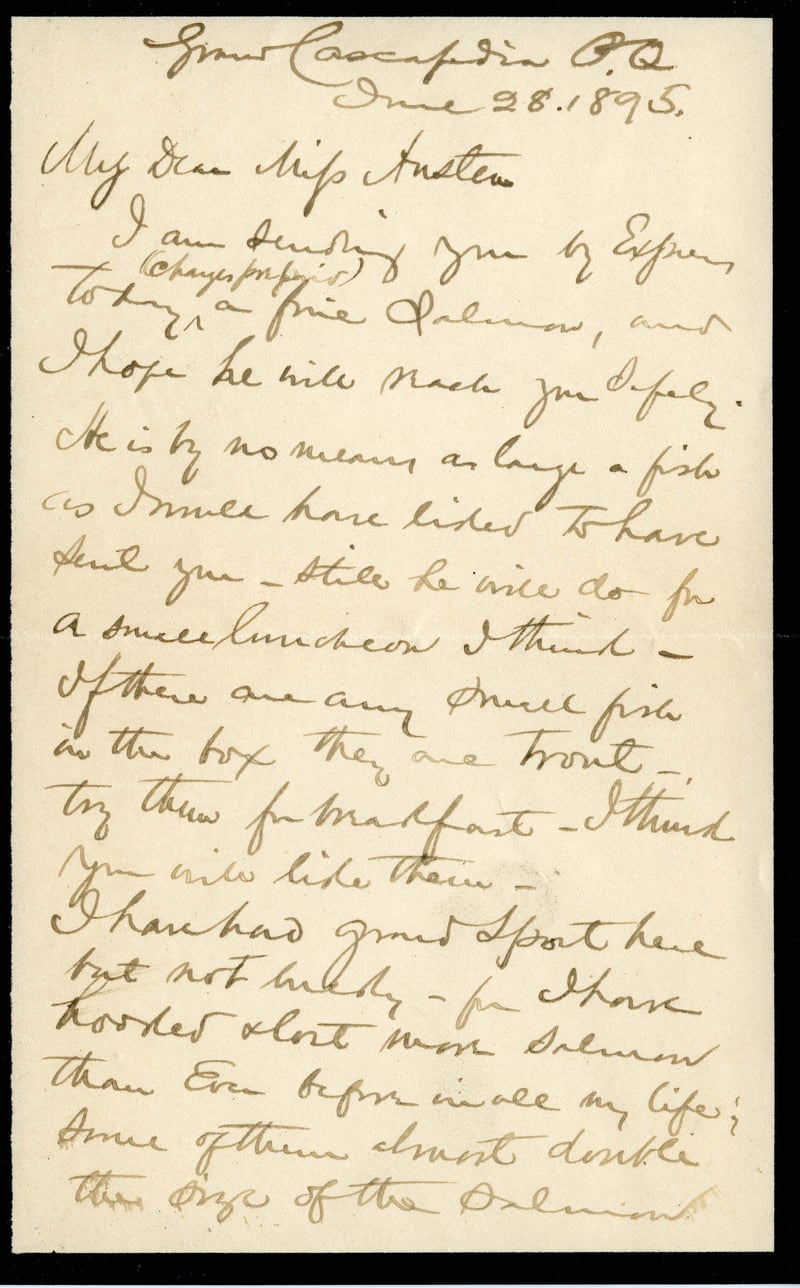 Grand Cascapedia P.Q
June 28. 1895.
My Dear Miss Austen
I am sending you by Express
(charges prepaid)
today, a fine Salmon, and
I hope he will reach you Safely.
He is by no means as large a fish
as I would have liked to have
sent you - still he will do for
a small luncheon I think -
If there are any small fish
in the box they are trout -
try them for breakfast - I think
you will like them -
I have had grand Sport here
but not lucky - for I have
hooked & lost more Salmon
than Ever before in all my life;
some of them almost double
the size of the Salmon